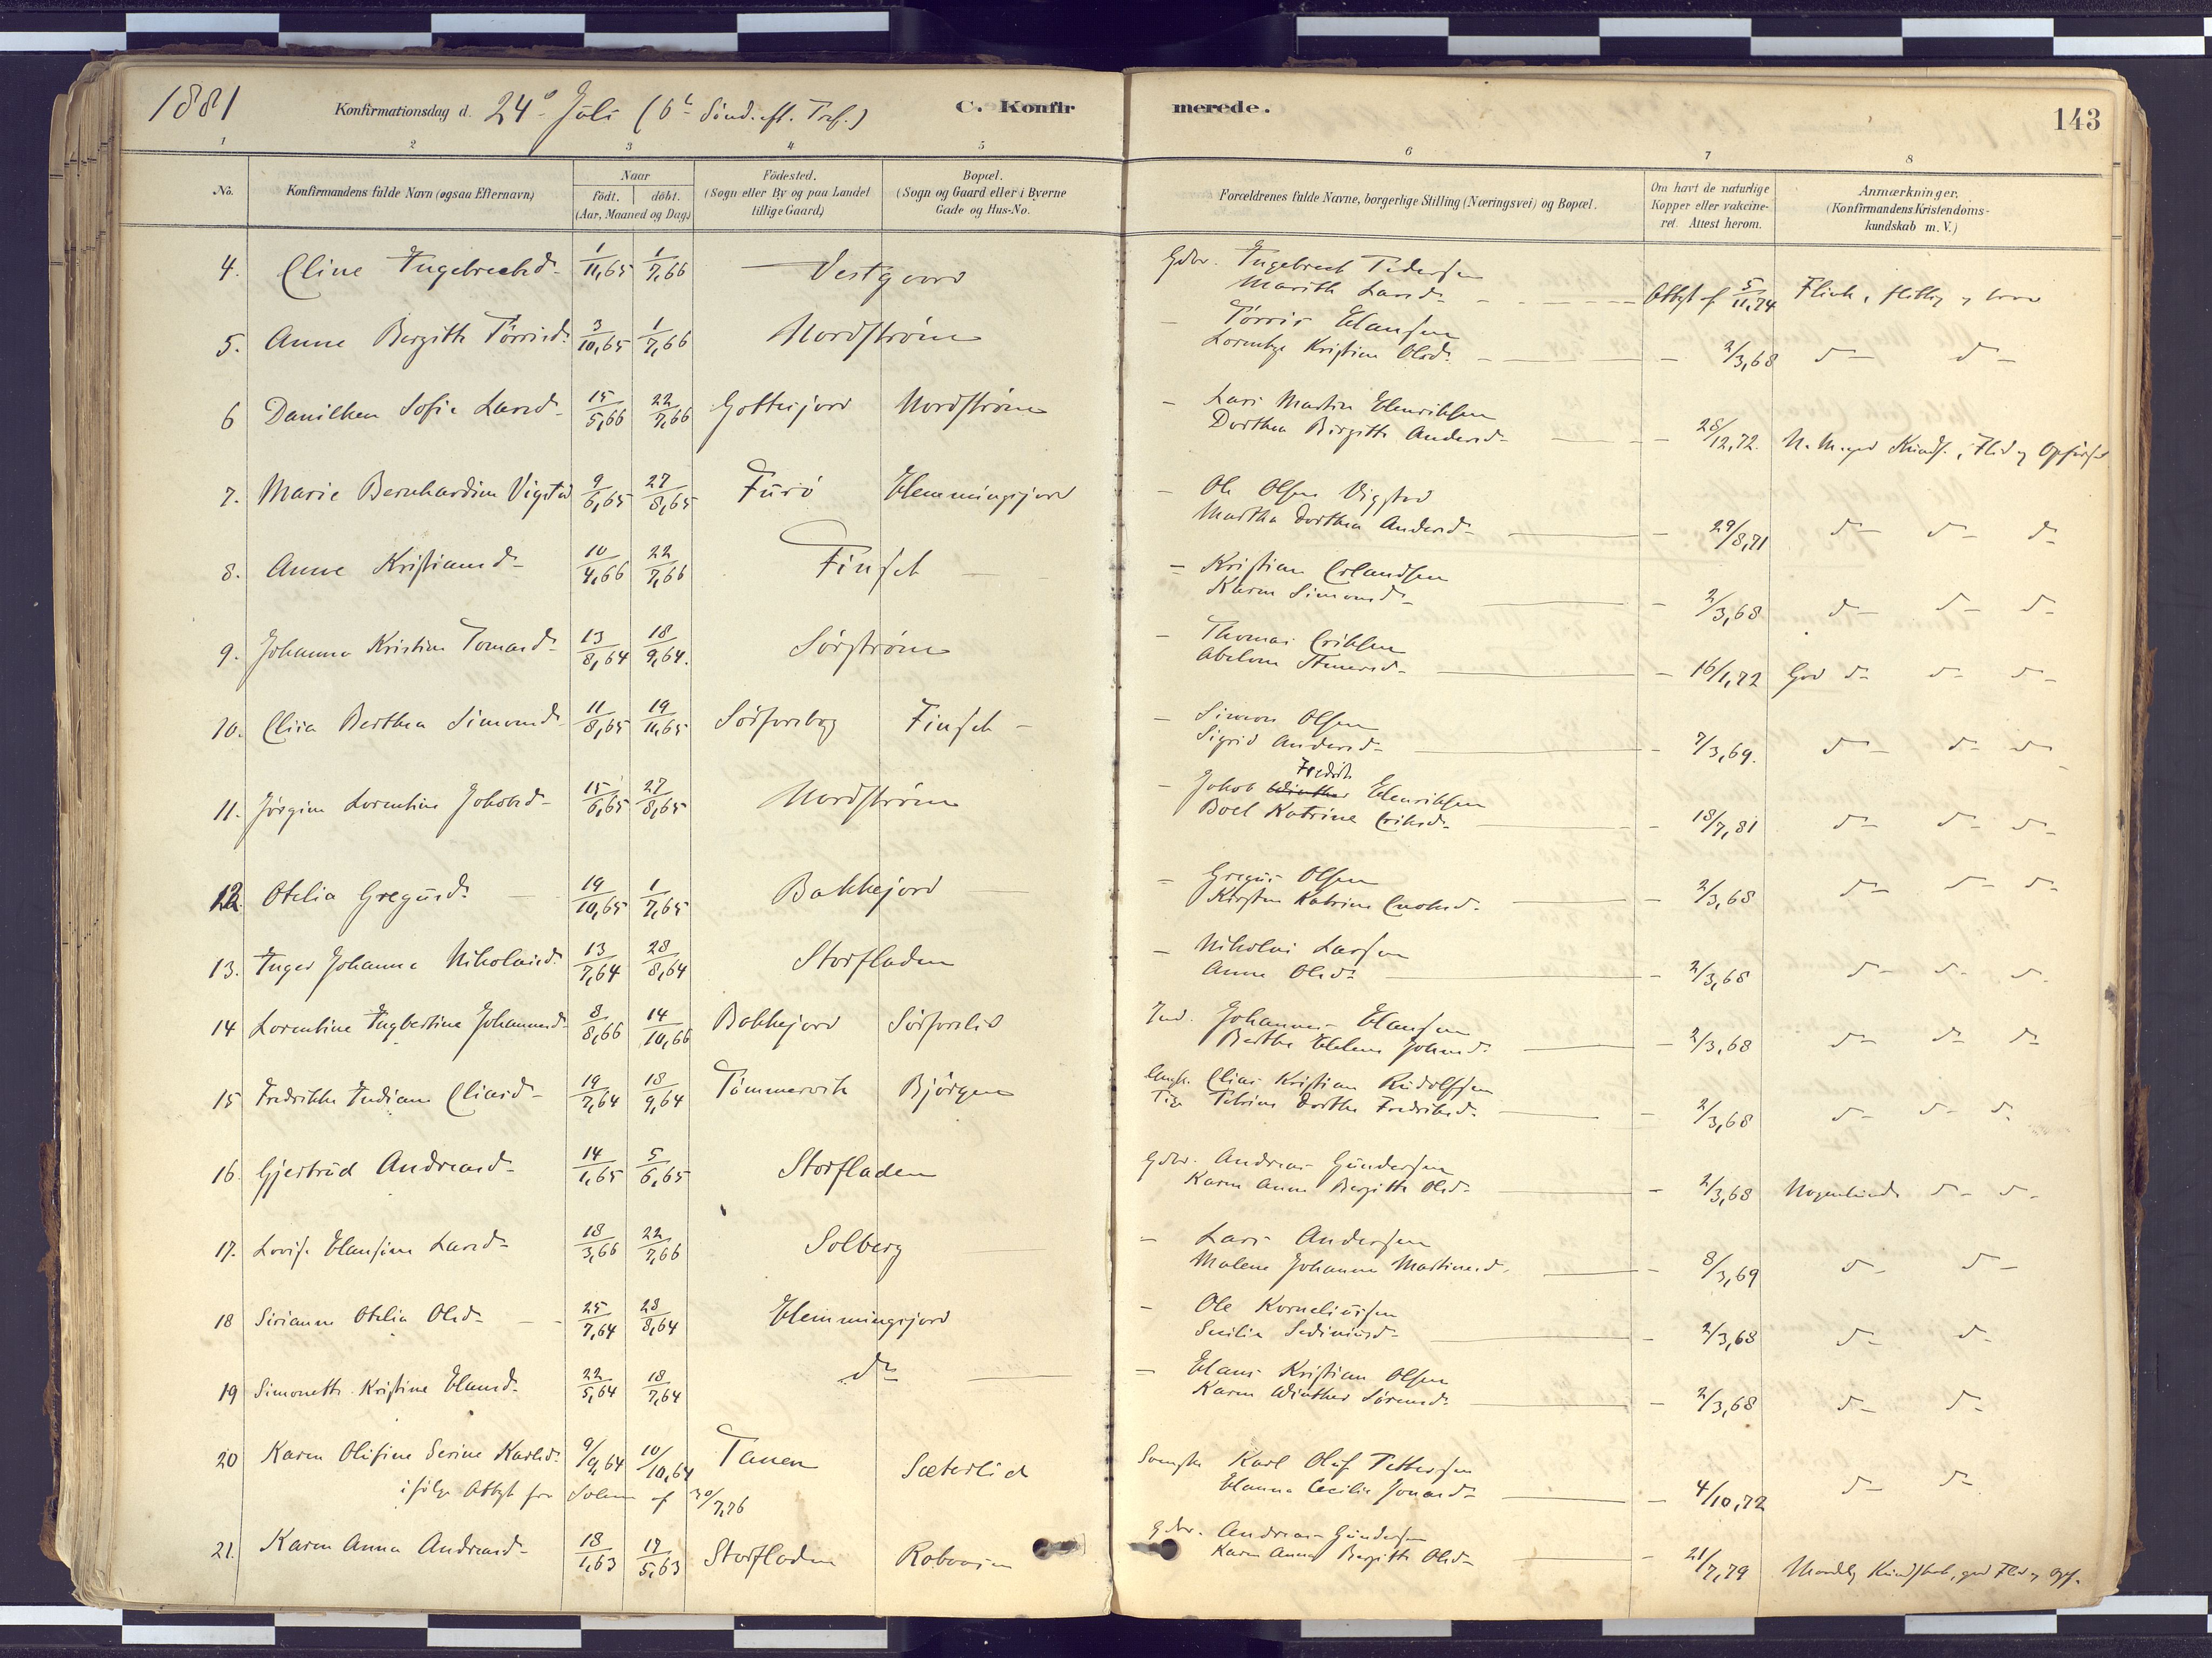 1881 Konfirmationsdag d. 24de Juli (6te Sönd. eft. Tref.) C. Konfirmerede. 143
1 2 3 4 5 6 7 8
No. Konfirmandens fulde Navn (ogsaa Efternavn) Naar födt. döbt. (Aar, Maaned og Dag) Födested. (Sogn eller By og paa Landet tillige Gaard) Bopæl. (Sogn og Gaard eller i Byerne Gade og Hus-No. Forældrenes fulde Navne, borgerlige Stilling (Næringsvei) og Bopæl. Om havt de naturlige Kopper eller vakcineret. Attest herom. Anmærkninger. (Konfirmandens Kristendomskundskab m. V.)
4. Eline Ingebrechtd. 1/11,65 1/7,66 Vestgaard Gdbr. Ingebrecht Pedersen
Marith Larsd. Attest af 5/11,74 Flink, flittig og brav
5. Anne Bergitte Törrisd. 3/10,65 1/7,66 Nordström – Törris Hansen
Lorentze Kristine Olsd. – 2/3,68 d– d–
6 Danikken Sofie Larsd. 15/5,66 22/7,66 Gottesjord Nordström – Lars Martin Henriksen
Dorthea Birgitte Andersd. – 28/12,72. M. Meget Kundsk., Flid og Opførsel
7. Marie Bernhardine Vigstad 9/6,65 27/8,65 Furö Hemmingsjord – Ole Olsen Vigstad
Martha Dorthea Andersd. – 29/8,71 d– d– d–
8. Anne Kristiansd. 10/4,66 22/7,66 Finset – – Kristian Erlandsen
Karen Simonsd. – 2/3,68 d– d– d–
9. Johanna Kristine Tomasd. 13/8,64 18/9,64. Sörström – Thomas Eriksen
Abelone Steenersd. – 16/1,72 God d– d– d–
10. Elisa Berthea Simonsd. 11/8,65 19/11,65 Sörforsbog Finset – – Simon Olsen
Sigrid Andersd. – 7/3,69. d– d– d–
11. Jörgine Lorentine Jakobsd. 15/6,65 27/8,65 Nordström – Jakob Fredrik Henriksen
Boel Katrine Eriksd. – 18/7,81 d– d– d–
12. Otelia Gregusd. – 19/10,65 1/7,65 Bakkejord – – Gregus Olsen
Kirsten Katrine Enoksd. – 2/3,68 d– d– d–
13. Inger Johanne Nikolaisd. 13/7,64 28/8,64 Storfladen – Nikolai Larsen
Anne Olsd. – 2/3,68 d– d– d–
14 Lorentine Ingbertine Johannesd. 8/8,66 14/10,66 Bakkejord Sörforslid Ind. Johannes Hansen
Berthe Helene Johnsd. – 2/3,68 d– d– d–
15 Fredrikke Indiane Eliasd. 19/7,64 18/9,64 Tömmervik Björgen Elias Kristian Rudolfsen
Petrine Dorthe Fredriksd. – 2/3,68 d– d– d.
16. Gjertrud Andreasd. 14/1,65 5/6,65 Storfladen Gdbr. Andreas Gundersen
Karen Anne Bergitte Olsd. – 2/3,68 Nogenlunde d– d–
17. Lovise Hansine Larsd. 18/3,66 22/7,66 Solberg – Lars Andersen
Malene Johanna Martinsd. – 8/3,69 d– d–
18 Sirianne Otelia Olsd. – 25/7,64 28/8,64 Hemmingsjord – Ole Korneliussen
Secilia Sediniusd. – 2/3,68 d– d–
19 Simonette Kristine Hansd. 22/5,64 18/7,64 do – – Hans Kristian Olsen
Karen Winther Sörensd. – 2/3,68 d– d–
20 Karen Olifine Serine Karlsd. 9/9,64 10/10,64 Tanen Sæterlid Svensk Karl Oluf Pettersen
ifölge Attest fra Solem af 30/7,76 Hanna Cecilie Jonasd. – 4/10,72 d– d–
21. Karen Anna Andreasd. 18/1,63 17/5,63 Storfladen Gdbr. Andreas Gundersen
Karen Anne Bergitte Olsd. – 21/7,79 Maadelig Kundskab, god Flid og Opf.